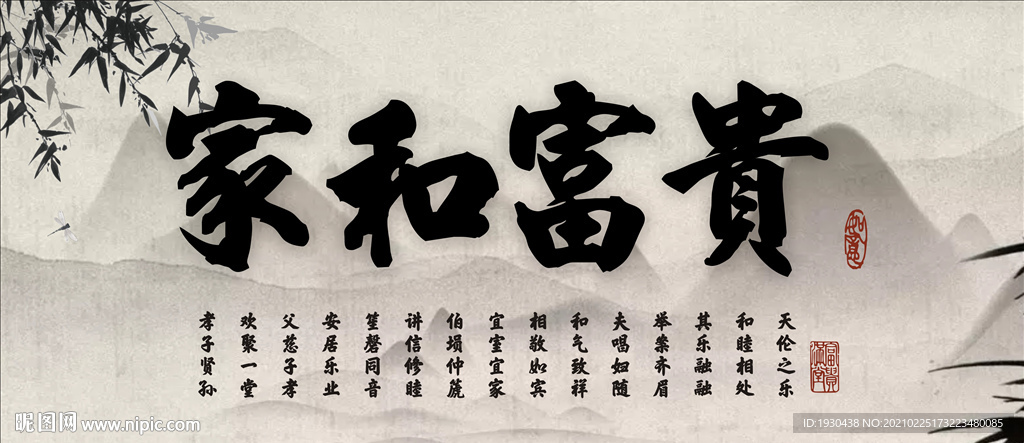 家和富貴
如意
天伦之乐
和睦相处
其乐融融
举案齐眉
夫唱妇随
和气致祥
相敬如宾
宜室宜家
伯埙仲篪
讲信修睦
笙磬同音
安居乐业
父慈子孝
欢聚一堂
孝子贤孙
富貴满堂
昵图网 www.nipic.com
ID:1930438 NO:20210225173223480085